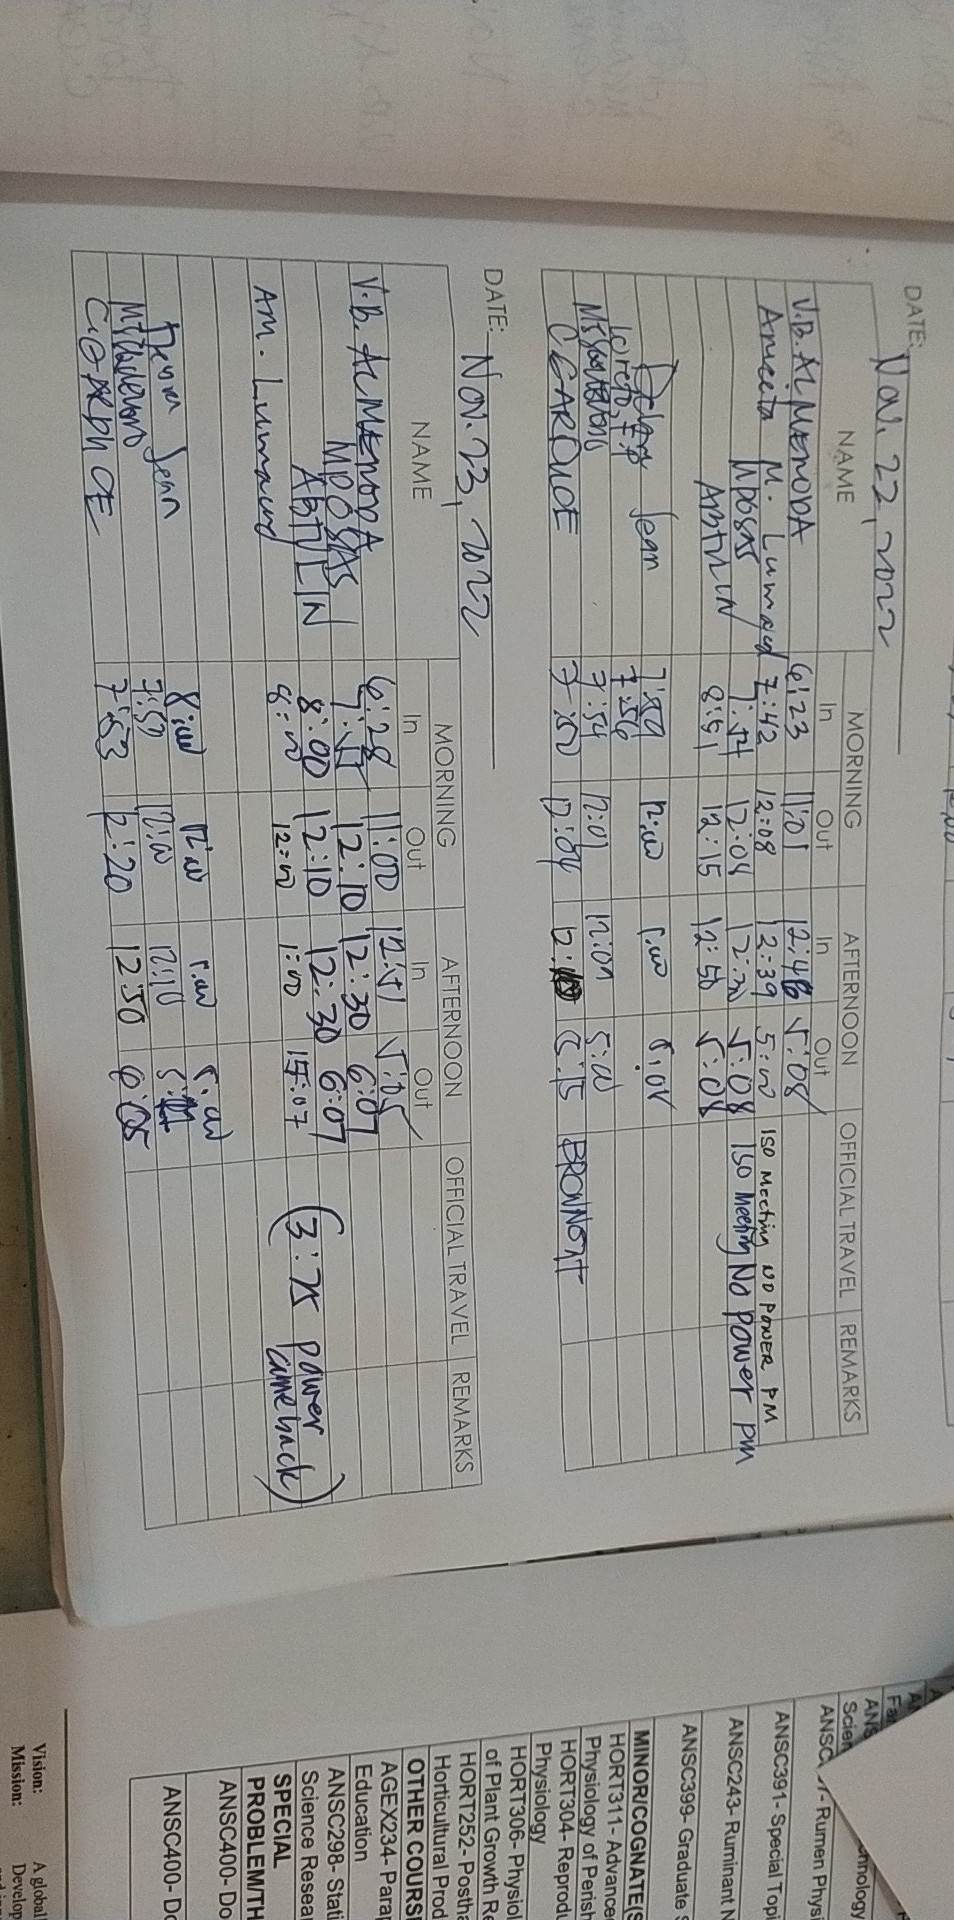 DATE: Nov. 22, 2022
NAME MORNING AFTERNOON OFFICIAL TRAVEL REMARKS
In Out In Out
V.B. ALMENDRA 6:23 11:01 12:46 5:08
M. Lumacad 7:42 12:08 12:39 5:00 ISO Meeting NO POWER PM
MPOSAS 7:54 12:08 12:30 5:08 ISO Meeting No power pm
ABTILIN 8:51 12:15 12:50 5:08
Jean 7:59 12:00 1:00 5:05
7:56
7:54 12:01 12:01 5:00
7:50 12:04 5:15 BROWNOUT
DATE: Nov. 23, 2022
NAME MORNING AFTERNOON OFFICIAL TRAVEL REMARKS
In Out In Out
V.B. ALMENDRA 6:28 11:00 12:51 5:05
MPOSAS 12:10 12:30 6:07
ABTILIN 8:00 12:10 12:30 6:07
AM. Lumacad 8:00 12:00 1:00 5:07 (3:25 power
came back)
Jean 8:00 12:00 1:00 5:00
7:50 12:00 12:10
7:53 12:20 12:50 6:05
ANSC391- Special Topi
ANSC243- Ruminant N
ANSC399- Graduate S
MINOR/COGNATE(S
HORT311- Advance
Physiology of Perish
HORT304- Reprodu
Physiology
HORT306- Physiol
of Plant Growth Re
HORT252- Postha
Horticultural Prod
OTHER COURS
AGEX234- Parap
Education
ANSC298- Stati
Science Resea
SPECIAL
PROBLEM/TH
ANSC400- Do
ANSC400- Do
Vision: A global
Mission: Develop